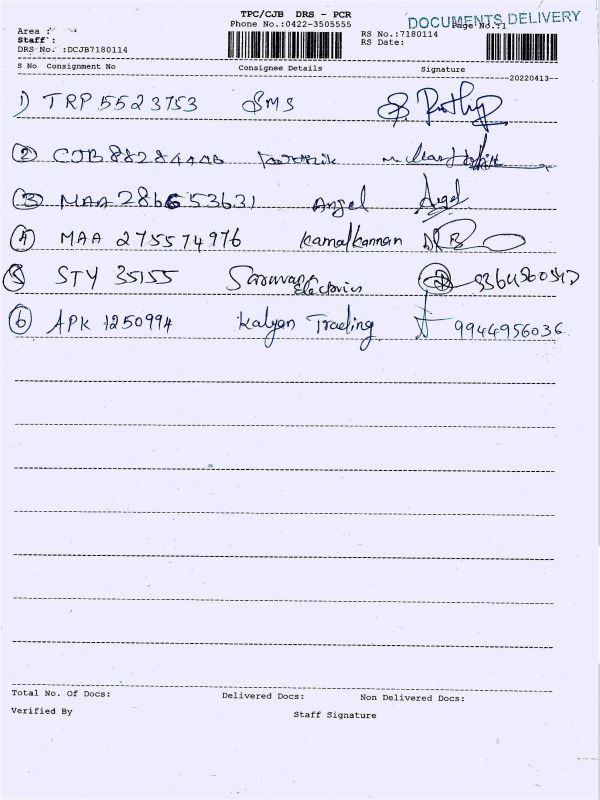 TPC/CJB DRS - PCR
DOCUMENTS DELIVERY
Phone No.:0422-3505555
Page No.:1
Area :
RS No.:7180114
Staff :
RS Date:
DRS No. :DCJB7180114
S No Consignment No Consignee Details Signature
20220413
1) TRP 5523753 SMS
2
3 MAA 286653631 Angel Angel
4 MAA 275574976 Kamalkannan
5 STY 35155 Saravana Electronics
6 APK 1250994 Kalyan Trading 9944956036
Total No. Of Docs: Delivered Docs: Non Delivered Docs:
Verified By Staff Signature